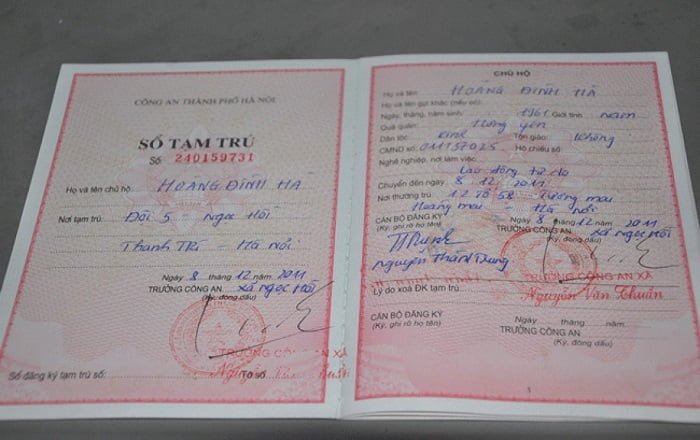 CÔNG AN THÀNH PHỐ HÀ NỘI
SỔ TẠM TRÚ
Số 240159731
Họ và tên chủ hộ: HOÀNG ĐÌNH HÀ
Nơi tạm trú: Đội 5 - Ngọc Hồi
Thanh Trì - Hà Nội
Ngày 8 tháng 12 năm 2011
TRƯỞNG CÔNG AN xã Ngọc Hồi
(Ký, đóng dấu)
TRƯỞNG CÔNG AN XÃ
Sổ đăng ký tạm trú số: Tờ số
CHỦ HỘ
Họ và tên: HOÀNG ĐÌNH HÀ
Họ và tên gọi khác (nếu có):
Ngày, tháng, năm sinh: 1961 Giới tính: nam
Quê quán: Hưng Yên
Dân tộc: Kinh Tôn giáo: Không
CMND số: 011157025 Hộ chiếu số:
Nghề nghiệp, nơi làm việc:
Lao động tự do
Chuyển đến ngày 8/12/2011
Nơi thường trú: 12 Tổ 58 - Tương mai
Hoàng mai - Hà nội
Ngày 8 tháng 12 năm 2011
CÁN BỘ ĐĂNG KÝ TRƯỞNG CÔNG AN xã Ngọc Hồi
(Ký, ghi rõ họ tên) (Ký, đóng dấu)
Nguyễn Thành Trung
TRƯỞNG CÔNG AN XÃ
Nguyễn Văn Thuần
Lý do xoá ĐK tạm trú:
Ngày tháng năm
CÁN BỘ ĐĂNG KÝ TRƯỞNG CÔNG AN
(Ký, ghi rõ họ tên) (Ký, đóng dấu)